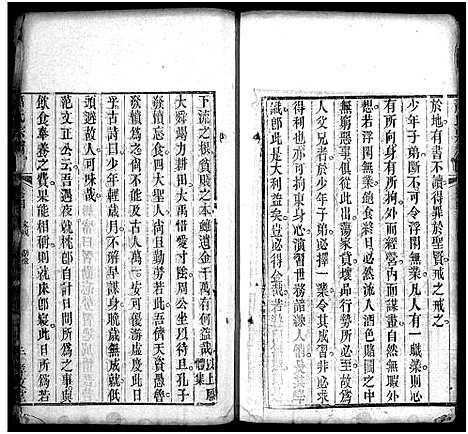 於地有書不讀得罪於聖賢戒之戒之
少年子弟斷不可令浮閒無業凡人有一職業則心
有所向身有所拘外而經營內而謀畫自然無暇外
求若浮閒無業飽食終日必然流入酒色賭園之中
無窮惡事俱從此出蕩家貲壞品行無所不至故凡
人父兄者於少年子弟必擇一業令其成習非必能
得利也亦可拘束身心演習世務諳練人情異日知
識卽此是大利益矣豈必得金哉
下流之根貧賤之本雖遺金千萬有何益哉以上履體集
大舜竭力耕田大禹惜寸陰周公坐以待旦孔子
發憤忘食四大聖人尚且勤勞若此吾人資愚魯
發憤為之猶恐不及一安可優游虛度此日
乎古詩曰少年輕歲月不解早謀身晚歲無成就低
頭避故人可味哉
范文正公云吾遇夜就枕卽自計一日所為之事與
飲食奉養之費果能相稱則就床卽寢此日所為若